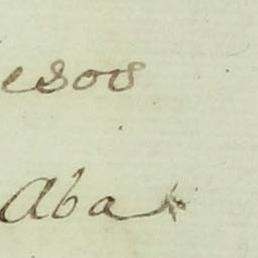 esos
Aba